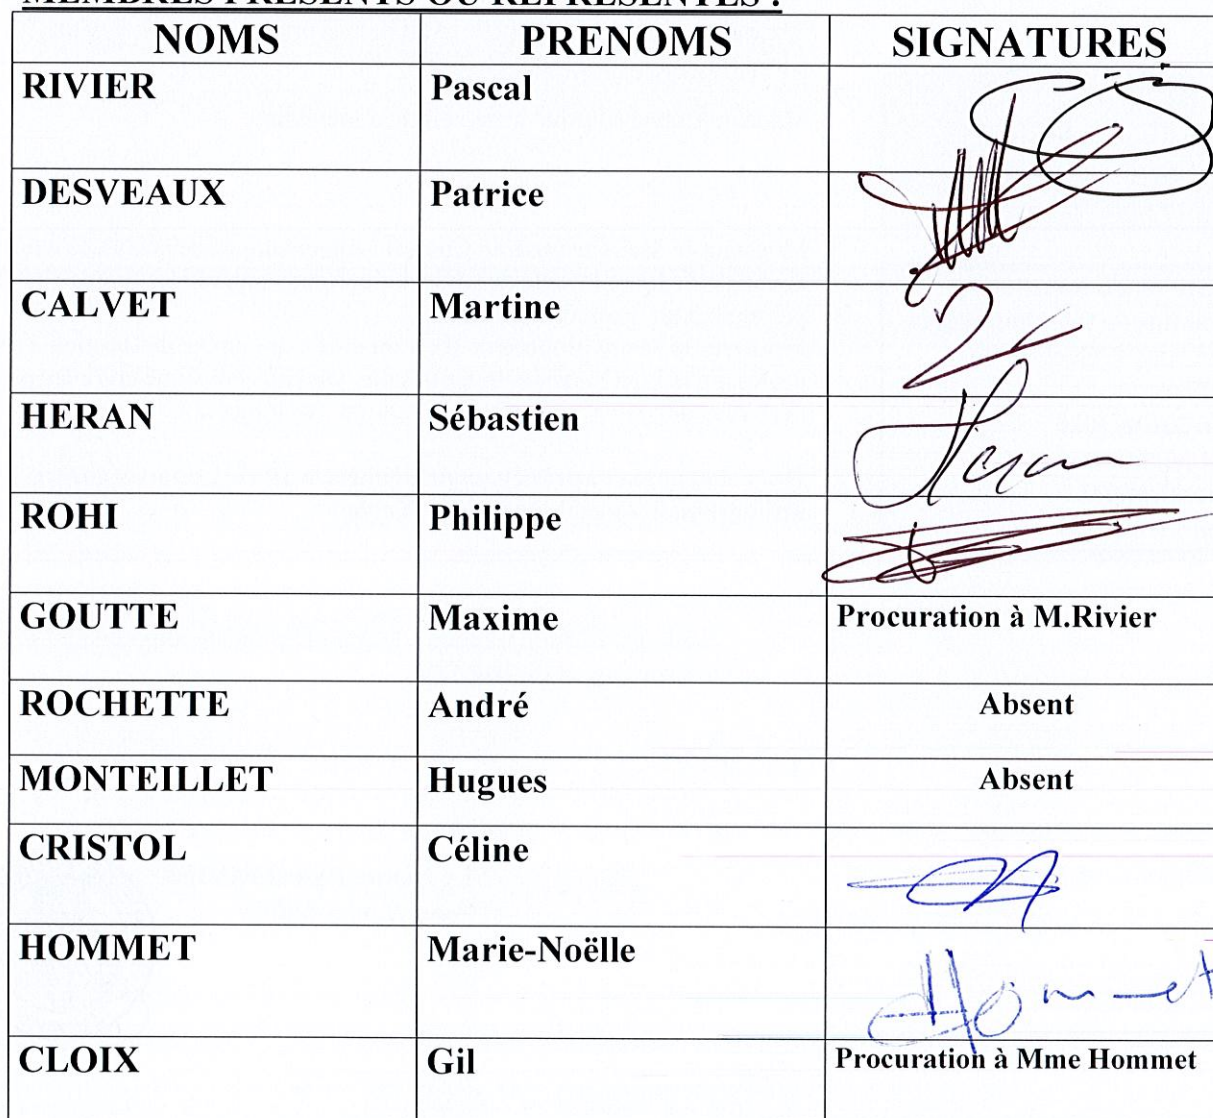 MEMBRES PRESENTS OU REPRESENTES :
NOMS PRENOMS SIGNATURES
RIVIER Pascal
DESVEAUX Patrice
CALVET Martine
HERAN Sébastien Heran
ROHI Philippe
GOUTTE Maxime Procuration à M.Rivier
ROCHETTE André Absent
MONTEILLET Hugues Absent
CRISTOL Céline
HOMMET Marie-Noëlle Hommet
CLOIX Gil Procuration à Mme Hommet